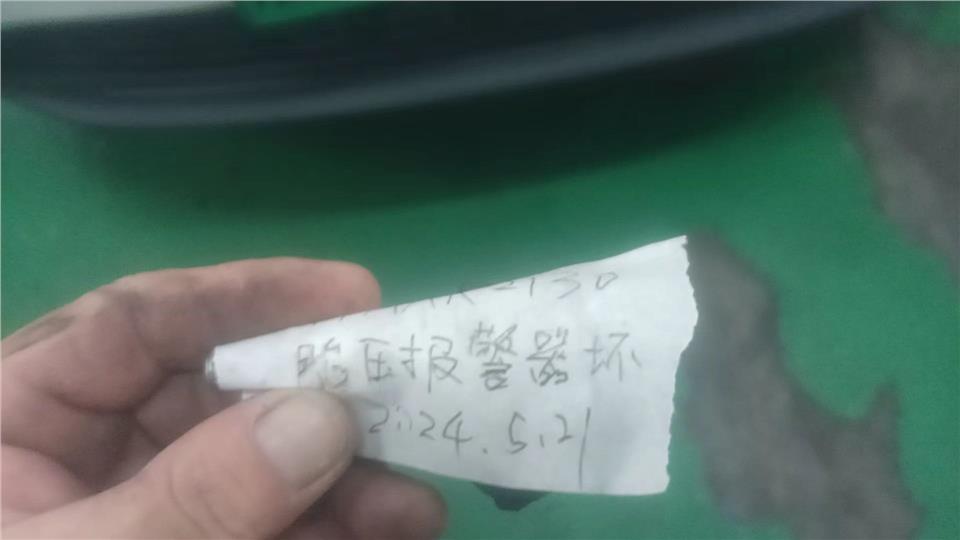 -130
胎压报警器坏
2024.5.21